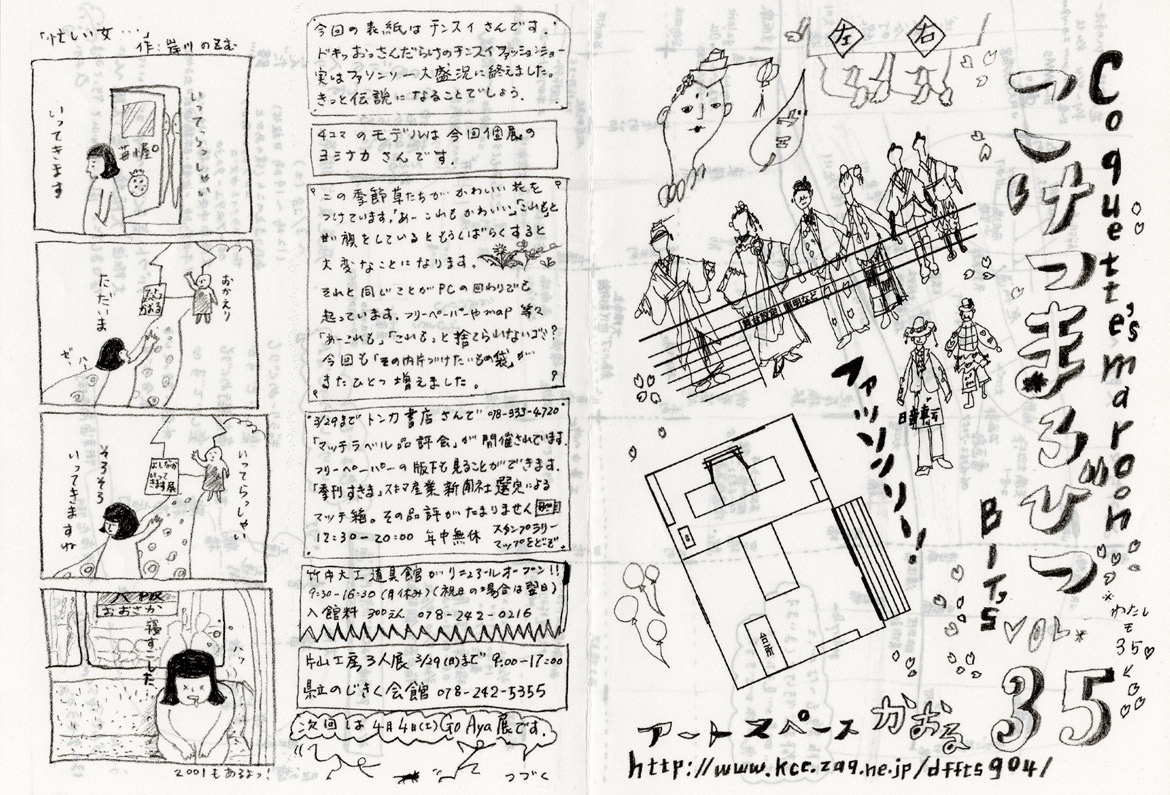 「忙しい女…」
いってらっしゃい
いってきます
おかえり
ただいま
ゼー
ハー
いってらっしゃい
そろそろ
いってきますね
おおさか
寝すごした
ハッ
2001もあるよっ!
今回の表紙はテンスイさんです。
ドキッおっさんだらけのテンスイファッションショー
実はファソンソー大盛況に終えました。
きっと伝説になることでしょう。
4コマのモデルは今回個展の
ヨシナカさんです。
この季節草たちがかわいい花を
つけています。「あーこれもかわいい」「これも」と
していると もうしばらくすると
大変なことになります。
それと同じことがPCの回わりでも
起っています。フリーペーパーやmap 等々
「あーこれも」「これも」と捨てられないゴミ?
今回も「その内片づけたいもの袋」が
またひとつ増えました。
3/29まで トンカ書店さんで 078-333-4720
「マッチラベル品評会」が開催されています。
フリーペーパーの版下も見ることができます。
「季刊すきま」スキマ産業新聞社選出による
マッチ箱。その品評がたまりません
12:30-20:00 年中無休
スタンプラリー
マップをどうぞ
竹中大工道具館がリニューアルオープン!!
9:30-16:30(月休み)(祝日の場合は翌日)
入館料 300えん 078-242-0216
片山工房3人展 3/29(日)まで 9:00-17:00
県立のじぎく会館 078-242-5355
次回は4月4日(土)Go Aya展です。
つづく
左
右
Coquette's marron
こけつまろびつ
Bーぶ
VOL
35
わたし
も
35
ファッソンソリー!
台所
アートスペースかおる
http://www.kcc.zaq.ne.jp/dffts904/